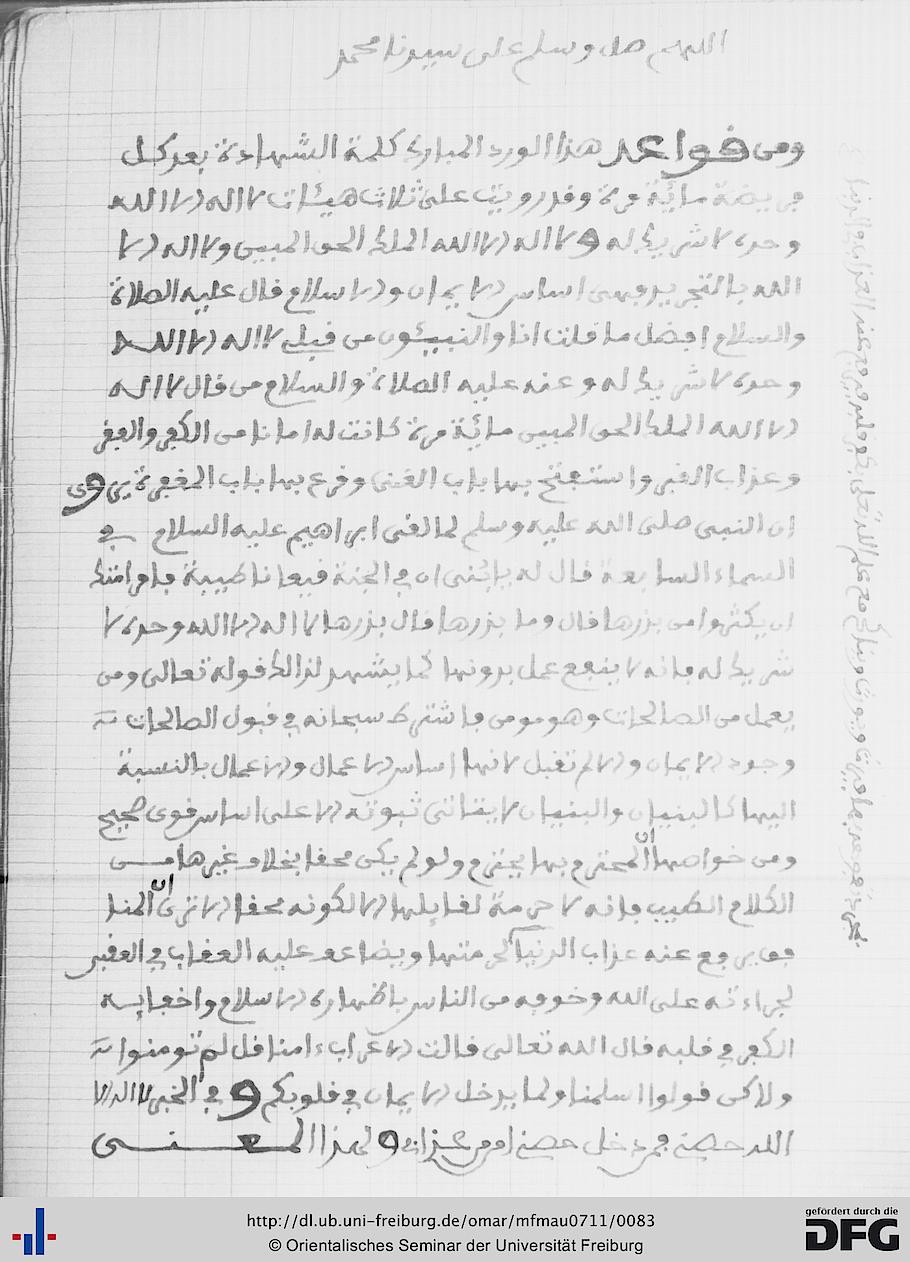 اللهم صل وسلم على سيدنا محمد
ومن قواعد هذا الورد المبارك كلمة الشهادة بعد كل
فريضة مائة مرة وقد رويت على ثلاث هيئات لا اله الا الله
وحده لا شريك له ولا اله الا الله الملك الحق المبين ولا اله الا
الله بالتجريد وهى اساس الايمان والاسلام قال عليه الصلاة
والسلام افضل ما قلت انا والنبيئون من قبلى لا اله الا الله
وحده لا شريك له وعنه عليه الصلاة والسلام من قال لا اله
الا الله الملك الحق المبين مائة مرة كانت له امانا من الكفر والفقر
وعذاب القبر واستفتح بها باب الغنى وقرع بها باب المغفرة يروى
ان النبى صلى الله عليه وسلم لما لقى ابراهيم عليه السلام في
السماء السابعة قال له يابنى ان في الجنة قيعانا طيبة فامر امتك
ان يكثروا من بزرها قال وما بزرها قال بزرها لا اله الا الله وحده لا
شريك له فانه لا ينفع عمل بدونها كما يشهد لذلك قوله تعالى ومن
يعمل من الصالحات وهو مومن فاشترط سبحانه في قبول الصالحات
وجود الايمان والا لم تقبل لانها اساس الاعمال والاعمال بالنسبة
اليها كالبنيان والبنيان لا يتاتى ثبوته الا على اساس قوى صحيح
ومن خواصها ان المحترم بها يحترم ولو لم يكن محقا بخلاف غيرها مـــن
الكلام الطيب فانه لا حرمة لقايلها الا لكونه محقا الا ترى ان المنا
فق يرفع عنه عذاب الدنيا لحرمتها ويضاعف عليه العقاب في العقبى
لجراءته على الله وخوفه من الناس باظهاره الاسلام واخفايه
الكفر في قلبه قال الله تعالى قالت الاعراب ءامنا قل لم تومنوا
ولاكن قولوا اسلمنا ولما يدخل الايمان في قلوبكم وفي الخبر لا اله الا
الله حصنى فمن دخل حصنى امن من عذابى ولهذا المعـــنـــى
http://dl.ub.uni-freiburg.de/omar/mfmau0711/0083
© Orientalisches Seminar der Universität Freiburg
gefördert durch die
DFG